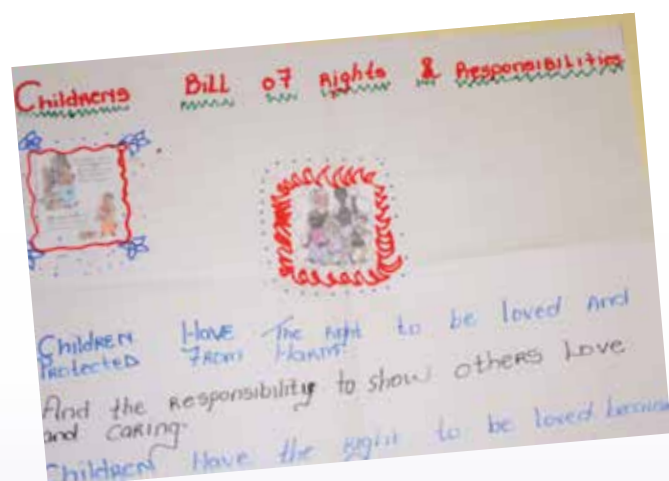 Childrens Bill of Rights & Responsibilities
Children Have The right to be loved And
Protected From Harm
And the Responsibility to show others Love
and caring.
Children Have the Right to be loved